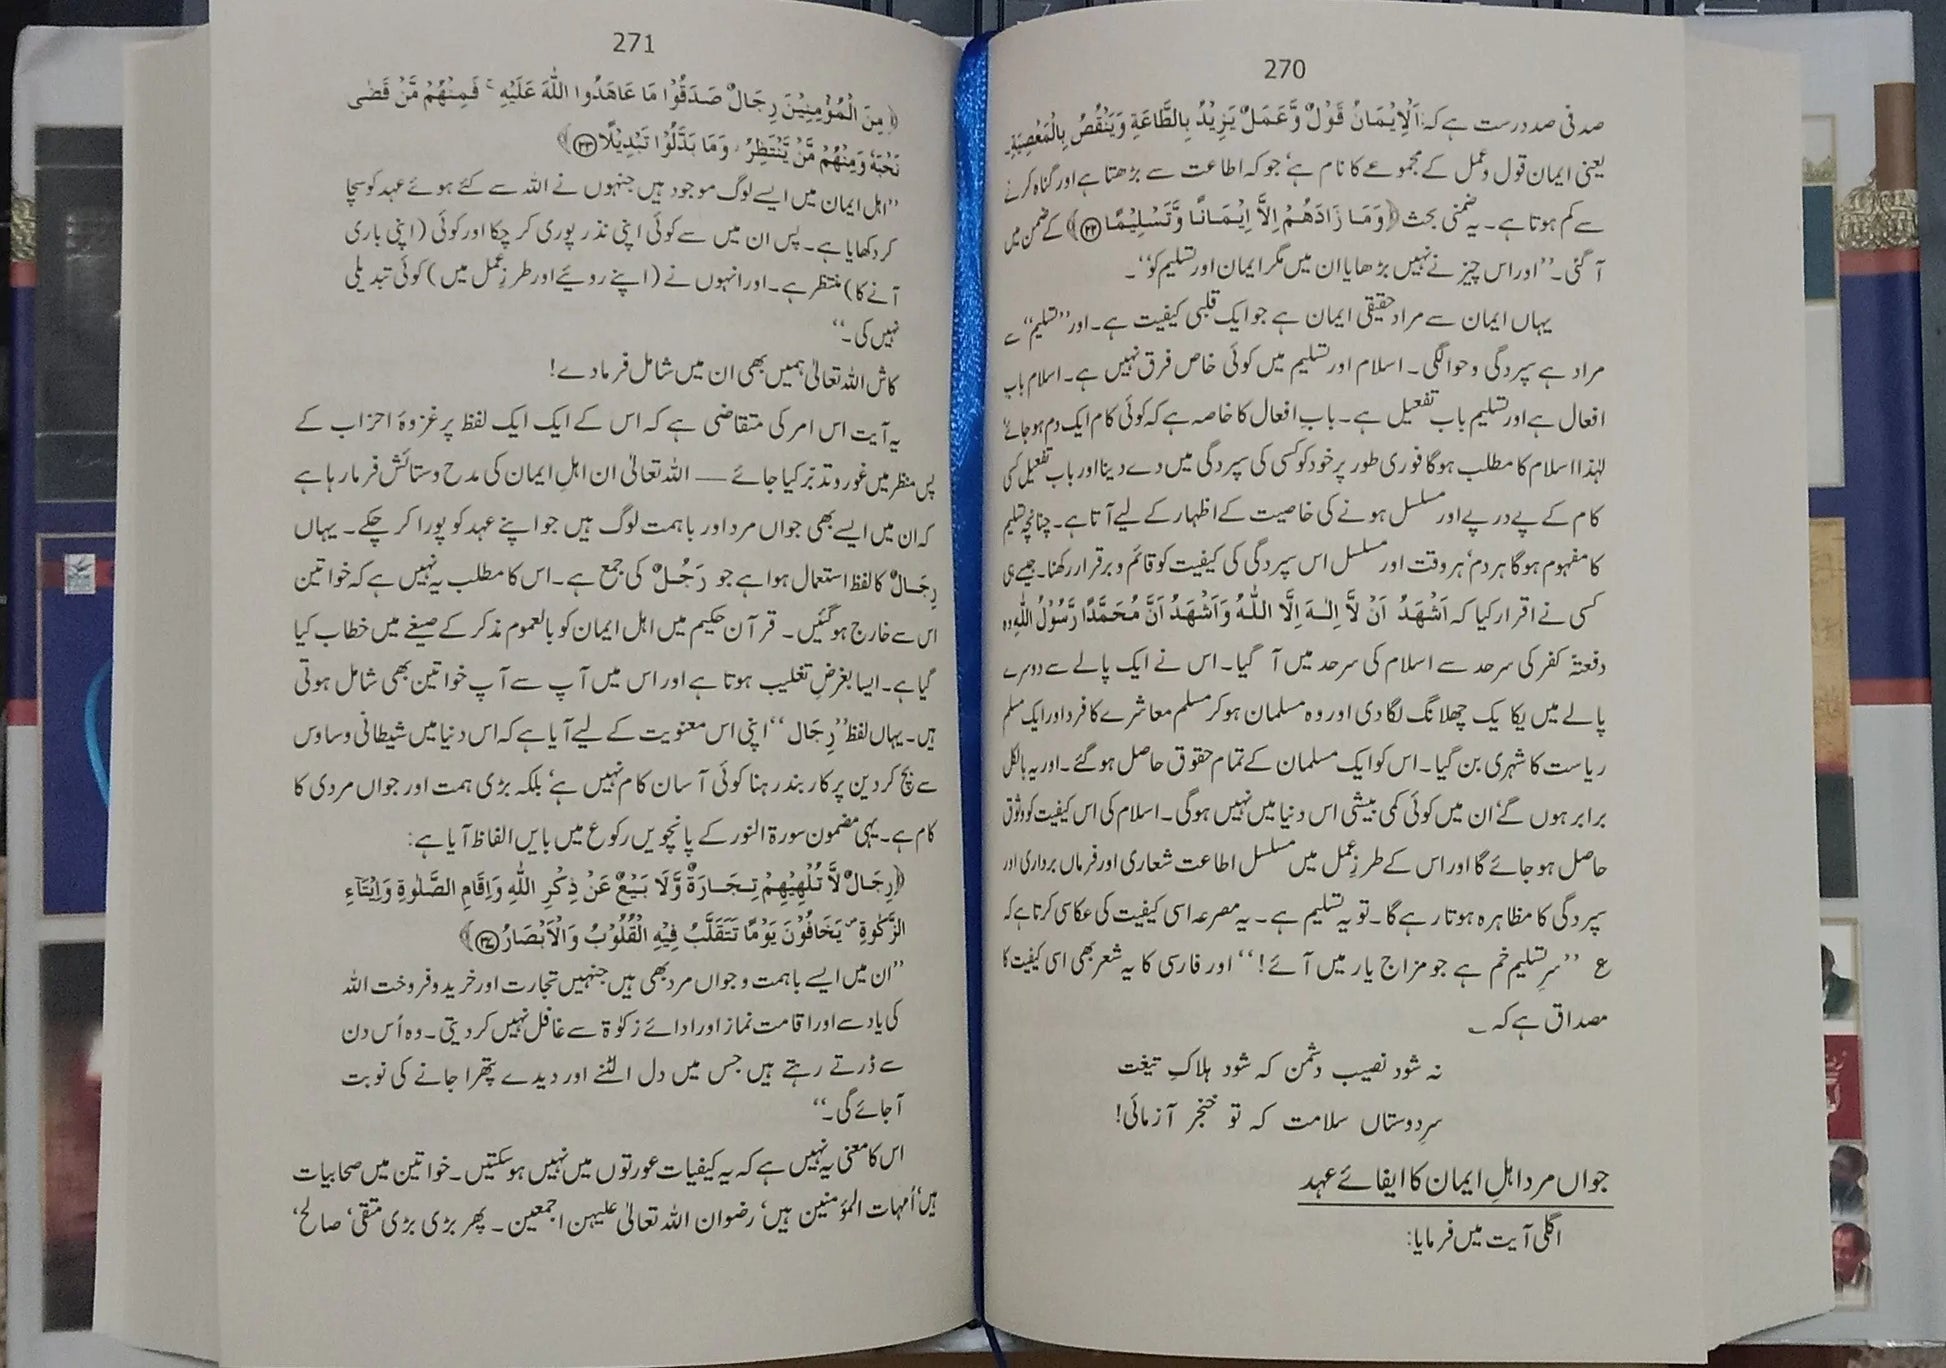 270
صد فی صد درست ہے کہ: اَلْاِیْمَانُ قَوْلٌ وَّعَمَلٌ یَزِیْدُ بِالطَّاعَةِ وَیَنْقُصُ بِالْمَعْصِیَةِ۔
یعنی ایمان قول وعمل کے مجموعے کا نام ہے‘ جو کہ اطاعت سے بڑھتا ہے اور گناہ کرنے
سے کم ہوتا ہے۔ یہ ضمنی بحث ﴿وَمَا زَادَهُمْ اِلَّآ اِیْمَانًا وَّتَسْلِیْمًا ﴿۲۲﴾﴾ کے ضمن میں
آ گئی۔ ’’اور اس چیز نے نہیں بڑھایا ان میں مگر ایمان اور تسلیم کو‘‘۔
یہاں ایمان سے مراد حقیقی ایمان ہے جو ایک قلبی کیفیت ہے۔ اور ’’تسلیم‘‘ سے
مراد ہے سپردگی و حوالگی۔ اسلام اور تسلیم میں کوئی خاص فرق نہیں ہے۔ اسلام باب
افعال ہے اور تسلیم باب تفعیل ہے۔ باب افعال کا خاصہ ہے کہ کوئی کام ایک دم ہو جائے‘
لہٰذا اسلام کا مطلب ہوگا فوری طور پر خود کو کسی کی سپردگی میں دے دینا اور باب تفعیل کسی
کام کے پے در پے اور مسلسل ہونے کی خاصیت کے اظہار کے لیے آتا ہے۔ چنانچہ تسلیم
کا مفہوم ہوگا ہر دم‘ ہر وقت اور مسلسل اس سپردگی کی کیفیت کو قائم و برقرار رکھنا۔ جیسے ہی
کسی نے اقرار کیا کہ اَشْهَدُ اَنْ لَّا اِلٰهَ اِلَّا اللّٰهُ وَاَشْهَدُ اَنَّ مُحَمَّدًا رَّسُوْلُ اللّٰهِ وہ
دفعتہً کفر کی سرحد سے اسلام کی سرحد میں آ گیا۔ اس نے ایک پالے سے دوسرے
پالے میں یکا یک چھلانگ لگا دی اور وہ مسلمان ہو کر مسلم معاشرے کا فرد اور ایک مسلم
ریاست کا شہری بن گیا۔ اس کو ایک مسلمان کے تمام حقوق حاصل ہو گئے۔ اور یہ بالکل
برابر ہوں گے‘ ان میں کوئی کمی بیشی اس دنیا میں نہیں ہوگی۔ اسلام کی اس کیفیت کو وثوق
حاصل ہو جائے گا اور اس کے طرزِ عمل میں مسلسل اطاعت شعاری اور فرماں برداری اور
سپردگی کا مظاہرہ ہوتا رہے گا۔ تو یہ تسلیم ہے۔ یہ مصرعہ اسی کیفیت کی عکاسی کرتا ہے کہ
ع ’’سرِ تسلیم خم ہے جو مزاجِ یار میں آئے!‘‘ اور فارسی کا یہ شعر بھی اسی کیفیت کا
مصداق ہے کہ ؎
نہ شود نصیب دشمن کہ شود ہلاکِ تیغت
سرِ دوستاں سلامت کہ تو خنجر آزمائی!
جواں مرد اہلِ ایمان کا ایفائے عہد
اگلی آیت میں فرمایا:
271
﴿مِنَ الْمُؤْمِنِیْنَ رِجَالٌ صَدَقُوْا مَا عَاهَدُوا اللّٰهَ عَلَیْهِ ۚ فَمِنْهُمْ مَّنْ قَضٰی
نَحْبَهٗ وَمِنْهُمْ مَّنْ یَّنْتَظِرُ ۖ وَمَا بَدَّلُوْا تَبْدِیْلًا ﴿۲۳﴾﴾
’’اہل ایمان میں ایسے لوگ موجود ہیں جنہوں نے اللہ سے کئے ہوئے عہد کو سچا
کر دکھایا ہے۔ پس ان میں سے کوئی اپنی نذر پوری کر چکا اور کوئی (اپنی باری
آنے کا) منتظر ہے۔ اور انہوں نے (اپنے رویئے اور طرزِ عمل میں) کوئی تبدیلی
نہیں کی۔‘‘
کاش اللہ تعالیٰ ہمیں بھی ان میں شامل فرما دے!
یہ آیت اس امر کی متقاضی ہے کہ اس کے ایک ایک لفظ پر غزوۂ احزاب کے
پس منظر میں غور و تدبّر کیا جائے — اللہ تعالیٰ ان اہلِ ایمان کی مدح وستائش فرما رہا ہے
کہ ان میں ایسے بھی جواں مرد اور باہمت لوگ ہیں جو اپنے عہد کو پورا کر چکے۔ یہاں
رِجَالٌ کا لفظ استعمال ہوا ہے جو رَجُلٌ کی جمع ہے۔ اس کا مطلب یہ نہیں ہے کہ خواتین
اس سے خارج ہو گئیں۔ قرآن حکیم میں اہل ایمان کو بالعموم مذکر کے صیغے میں خطاب کیا
گیا ہے۔ ایسا بغرضِ تغلیب ہوتا ہے اور اس میں آپ سے آپ خواتین بھی شامل ہوتی
ہیں۔ یہاں لفظ ’’رِجَال‘‘ اپنی اس معنویت کے لیے آیا ہے کہ اس دنیا میں شیطانی وساوس
سے بچ کر دین پر کاربند رہنا کوئی آسان کام نہیں ہے‘ بلکہ بڑی ہمت اور جواں مردی کا
کام ہے۔ یہی مضمون سورۃ النور کے پانچویں رکوع میں بایں الفاظ آیا ہے:
﴿رِجَالٌ لَّا تُلْهِیْهِمْ تِجَارَةٌ وَّلَا بَیْعٌ عَنْ ذِكْرِ اللّٰهِ وَاِقَامِ الصَّلٰوةِ وَاِیْتَآءِ
الزَّكٰوةِ ۙ یَخَافُوْنَ یَوْمًا تَتَقَلَّبُ فِیْهِ الْقُلُوْبُ وَالْاَبْصَارُ ﴿۳۷﴾﴾
’’ان میں ایسے باہمت و جواں مرد بھی ہیں جنہیں تجارت اور خرید و فروخت اللہ
کی یاد سے اور اقامت نماز اور ادائے زکوٰۃ سے غافل نہیں کر دیتی۔ وہ اُس دن
سے ڈرتے رہتے ہیں جس میں دل الٹنے اور دیدے پتھرا جانے کی نوبت
آ جائے گی۔‘‘
اس کا معنی یہ نہیں ہے کہ یہ کیفیات عورتوں میں نہیں ہو سکتیں۔ خواتین میں صحابیات
ہیں‘ اُمہات المؤمنین ہیں‘ رضوان اللہ تعالیٰ علیہن اجمعین۔ پھر بڑی بڑی متقی‘ صالح‘